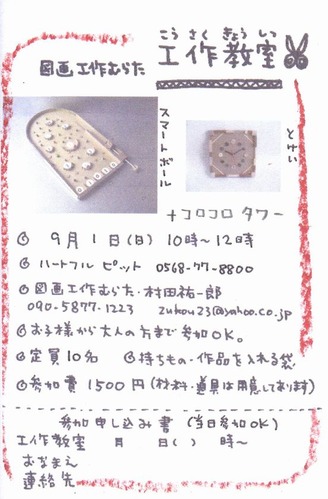 こうさくきょうしつ
図画工作むらた 工作教室
スマートボール
とけい
+コロコロ タワー
◎ 9月1日(日) 10時〜12時
◎ ハートフル ピット 0568-77-8800
◎ 図画工作むらた・村田祐一郎
090-5877-1223 zukou23@yahoo.co.jp
◎ お子様から大人の方まで参加OK。
◎ 定員10名 ◎ 持ちもの・作品を入れる袋
◎ 参加費1500円(材料・道具は用意しております)
参加申し込み書 (当日参加OK)
工作教室 月 日( ) 時〜
おなまえ
連絡先